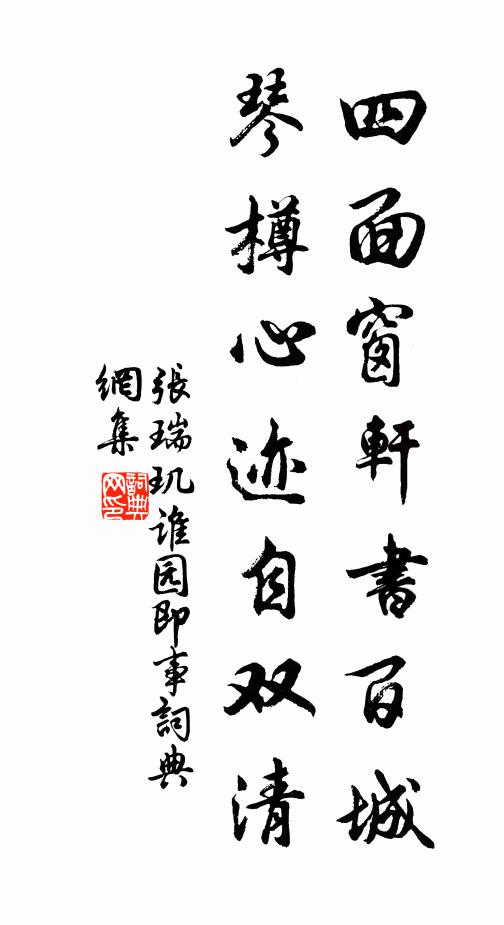 四面窗軒書百城
琴樽心迹自双清
張瑞玑誰园即事詞典
網集
詞典
网印